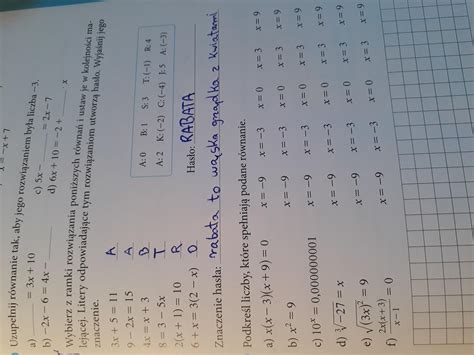 x = -x + 7
Uzupełnij równanie tak, aby jego rozwiązaniem była liczba -3.
a) ____ = 3x + 10
c) 5x - ____ = 2x - 7
b) -2x - 6 = 4x - ____
d) 6x + 10 = -2 + ____ x
Wybierz z ramki rozwiązania poniższych równań i ustaw je w kolejności malejącej. Litery odpowiadające tym rozwiązaniom utworzą hasło. Wyjaśnij jego znaczenie.
3x + 5 = 11 A
9 - 2x = 15 A
4x = x + 3 B
8 = 3 - 5x T
2(x + 1) = 10 R
6 + x = 3(2 - x) O
A: 0 B: 1 S: 3 T: (-1) R: 4
A: 2 K: (-2) C: (-4) J: 5 A: (-3)
Hasło: RABATA
Znaczenie hasła: rabata to wąska grządka z kwiatami
Podkreśl liczby, które spełniają podane równanie.
a) x(x - 3)(x + 9) = 0 x = -9 x = -3 x = 0 x = 3 x = 9
b) x² = 9 x = -9 x = -3 x = 0 x = 3 x = 9
c) 10ˣ = 0,000000001 x = -9 x = -3 x = 0 x = 3 x = 9
d) ∛-27 = x x = -9 x = -3 x = 0 x = 3 x = 9
e) √(3x)² = 9 x = -9 x = -3 x = 0 x = 3 x = 9
f) 2x(x+3)/(x-1) = 0 x = -9 x = -3 x = 0 x = 3 x = 9